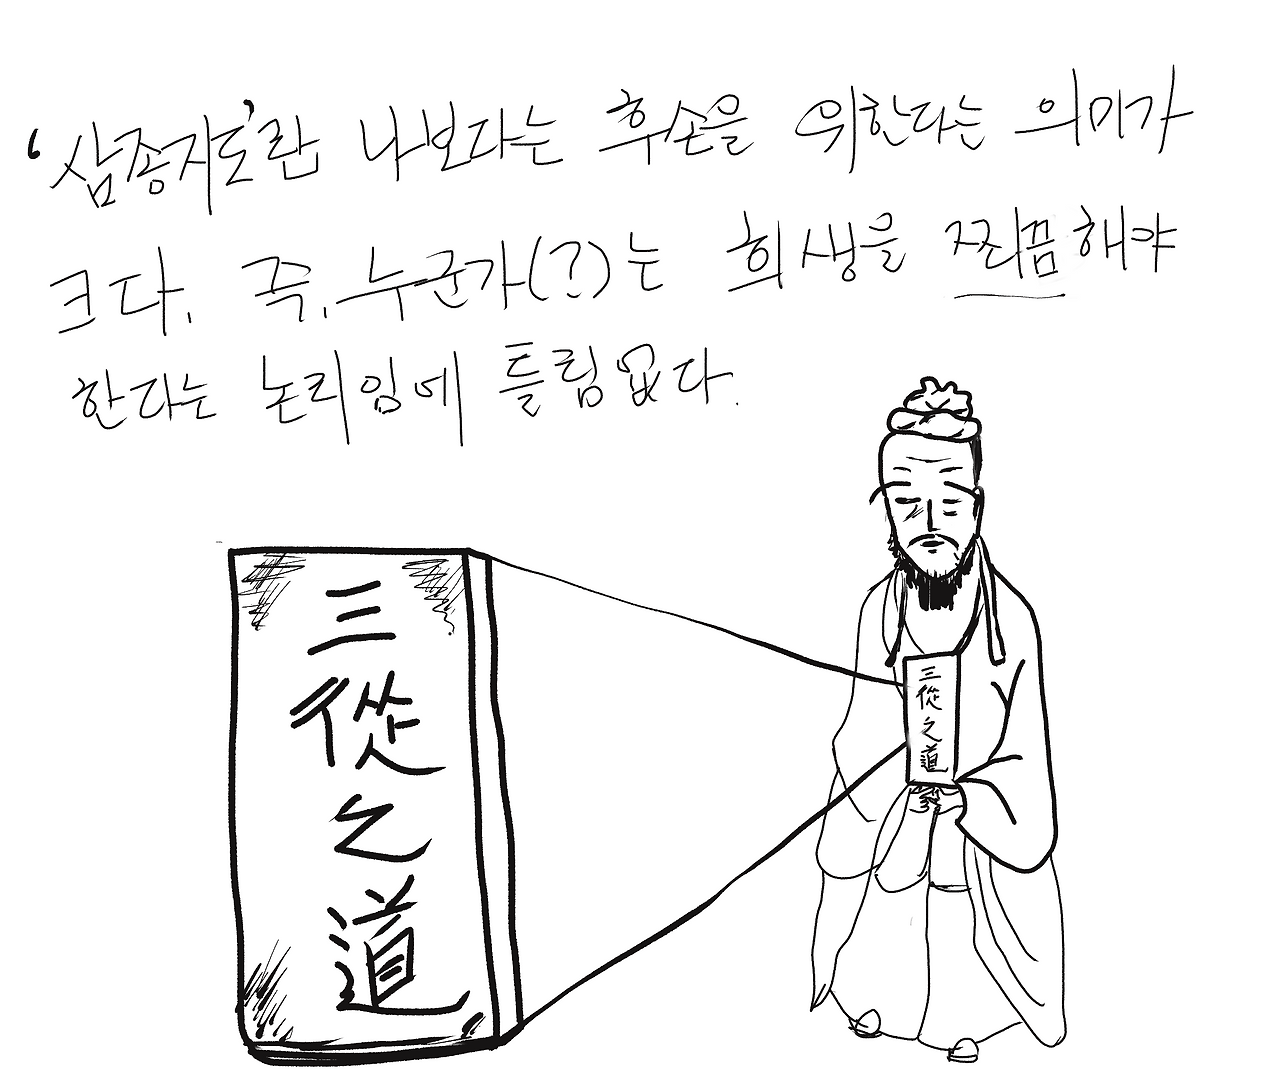 '삼종지도'란 나보다는 후손을 위한다는 의미가
크다. 즉, 누군가(?)는 희생을 찌끔해야
한다는 논리임에 틀림없다.
三從之道
三從之道